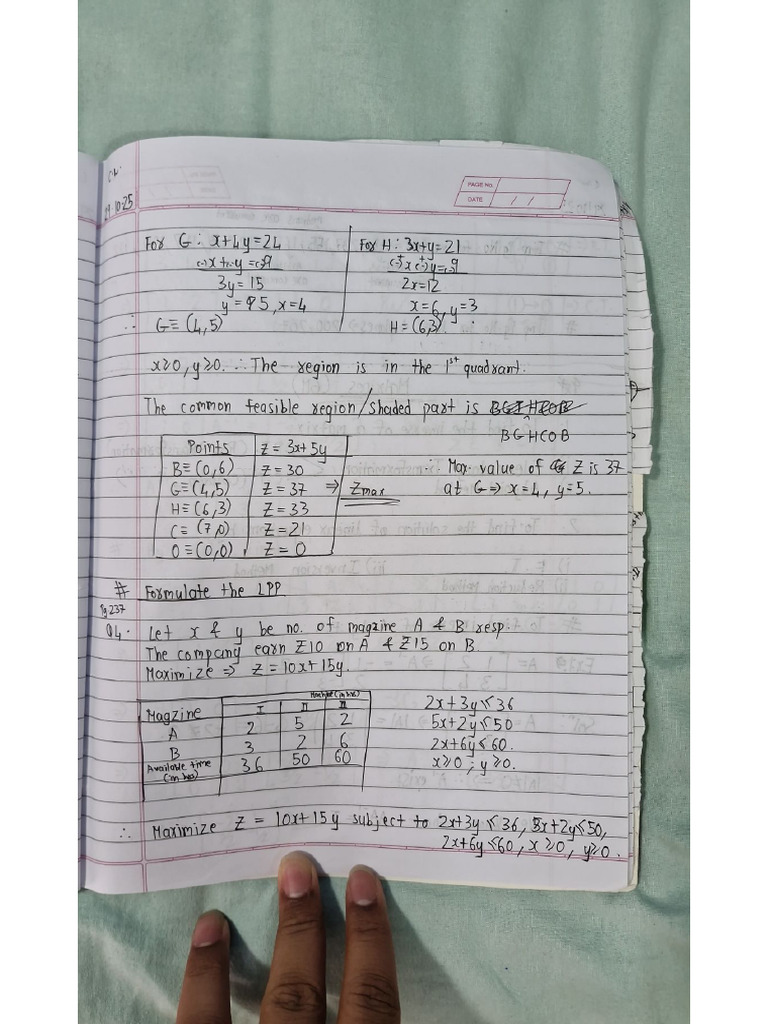 C.W.
29.10.25
PAGE NO.
DATE / /
For G: x+4y=24
(-)x+(-)y=(-)9
3y=15
y=5, x=4
∴ G≡(4,5)
For H: 3x+y=21
(-)x(-)y=(-)9
2x=12
x=6, y=3
H≡(6,3)
x≥0, y≥0. ∴ The region is in the 1st quadrant.
The common feasible region/shaded part is
BGHCOB
Points Z=3x+5y
B≡(0,6) Z=30
G≡(4,5) Z=37 ⇒ Zmax
H≡(6,3) Z=33
C≡(7,0) Z=21
O≡(0,0) Z=0
∴ Max. value of Z is 37
at G ⇒ x=4, y=5.
# Formulate the LPP
Pg 237
Q4. Let x & y be no. of magzine A & B resp.
The company earn ₹10 on A & ₹15 on B.
Maximize ⇒ Z=10x+15y.
Magzine I II III
A 2 5 2
B 3 2 6
Available time (in hrs) 36 50 60
2x+3y≤36
5x+2y≤50
2x+6y≤60.
x≥0; y≥0.
∴ Maximize Z = 10x+15y subject to 2x+3y≤36, 5x+2y≤50,
2x+6y≤60, x≥0, y≥0.